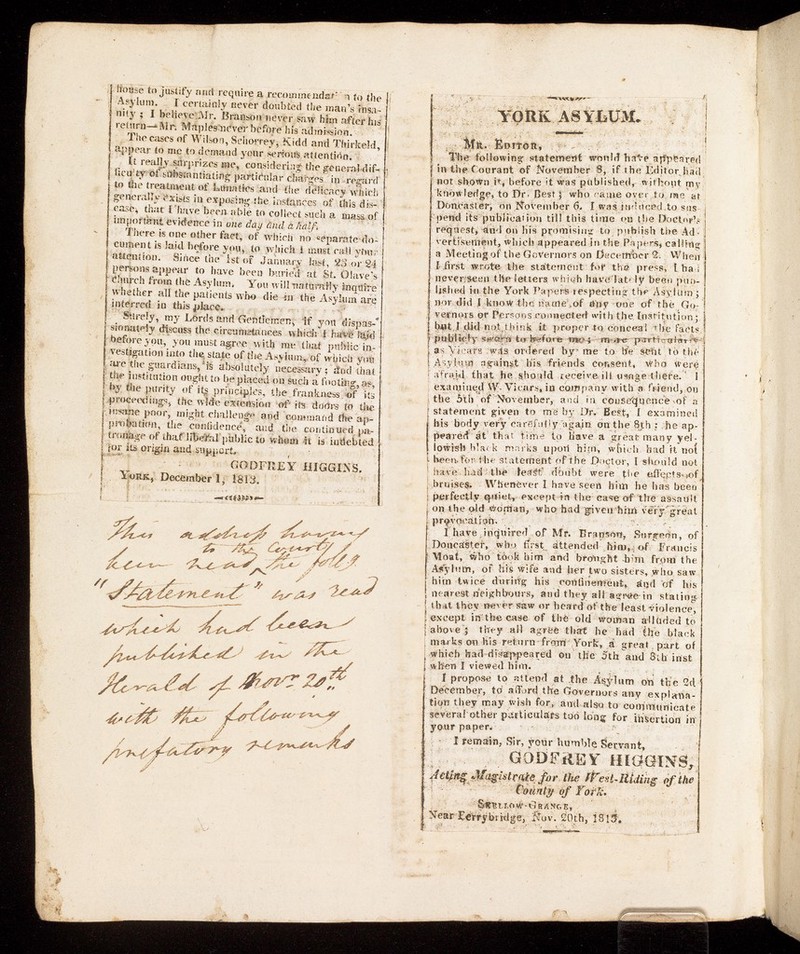 House to justify and require a recommendat n to the
Asylum. I certainly never doubted the man's insa-
nity; I believe Mr. Branson never saw him after his
return—Mr. Maples never before his admission.
The cases of Wilson, Schorrey, Kidd and Thirkeld,
appear to me to demand your serious attention.
It really surprizes me, considering the general dif-
ficulty of substantiating particular charges in regard
to the treatment of Lunatics and the delicacy which
generally exists in exposing the instances of this dis-
case, that I have been able to collect such a mass of
important evidence in one day and a half.
There is one other fact, of which no separate do-
cument is laid before you, to which I must call your
attention. Since the 1st of January last, 23 or 24
persons appear to have been buried at St. Olave's
church from the Asylum. You will naturally inquire
whether all the patients who die in the Asylum are
interred in this place.
Surely, my Lords and Gentlemen, if you dispas-
sionately discuss the circumstances which I have laid
before you, you must agree with me that public in-
vestigation into the state of the Asylum, of which you
are the guardians, is absolutely necessary; and that
the institution ought to be placed on such a footing, as,
by the purity of its principles, the frankness of its
proceedings, the wide extension of its doors to the
insane poor, might challenge and command the ap-
probation, the confidence, and the continued pa-
tronage of that liberal public to whom it is indebted
for its origin and support.
GODFREY HIGGINS.
York, December 1, 1813.
This address having
to the Court
been read, the follg
"Statement" was read
which had been
published in the
Herald of Novr 20th
with the following
prefatory remarks
YORK ASYLUM.
Mr. Editor,
The following statement would have appeared
in the Courant of November 8, if the Editor had
not shown it, before it was published, without my
knowledge, to Dr. Best; who came over to me at
Doncaster, on November 6. I was induced to sus-
pend its publication till this time on the Doctor's
request, and on his promising to publish the Ad-
vertisement, which appeared in the Papers, calling
a Meeting of the Governors on December 2. When
I first wrote the statement for the press, I had
never seen the letters which have lately been pub-
lished in the York Papers respecting the Asylum;
nor did I know the name of any one of the Go-
vernors or Persons connected with the Institution;
but I did not think it proper to conceal the facts
publicly sworn to before me; more particularly
as Vicars was ordered by me to be sent to the
Asylum against his friends consent, who were
afraid that he should receive ill usage there. I
examined W. Vicars, in company with a friend, on
the 5th of November, and in consequence of a
statement given to me by Dr. Best, I examined
his body very carefully again on the 8th; he ap-
peared at that time to have a great many yel-
lowish black marks upon him, which had it not
been for the statement of the Doctor, I should not
have had the least doubt were the effects of
bruises. Whenever I have seen him he has been
perfectly quiet, except in the case of the assault
on the old woman, who had given him very great
provocation.
I have inquired of Mr. Branson, Surgeon, of
Doncaster, who first attended him, of Francis
Moat, who took him and brought him from the
Asylum, of his wife and her two sisters, who saw
him twice during his confinement, and of his
nearest neighbours, and they all agree in stating
that they never saw or heard of the least violence,
except in the case of the old woman alluded to
above; they all agree that he had the black
marks on his return from York, a great part of
which had disappeared on the 5th and 8th inst
when I viewed him.
I propose to attend at the Asylum on the 2d
December, to afford the Governors any explana-
tion they may wish for, and also to communicate
several other particulars too long for insertion in
your paper.
I remain, Sir, your humble Servant,
GODFREY HIGGINS,
Acting Magistrate for the West-Riding of the
County of York.
Skellow-Grange,
Near Ferrybridge, Nov. 20th, 1813.